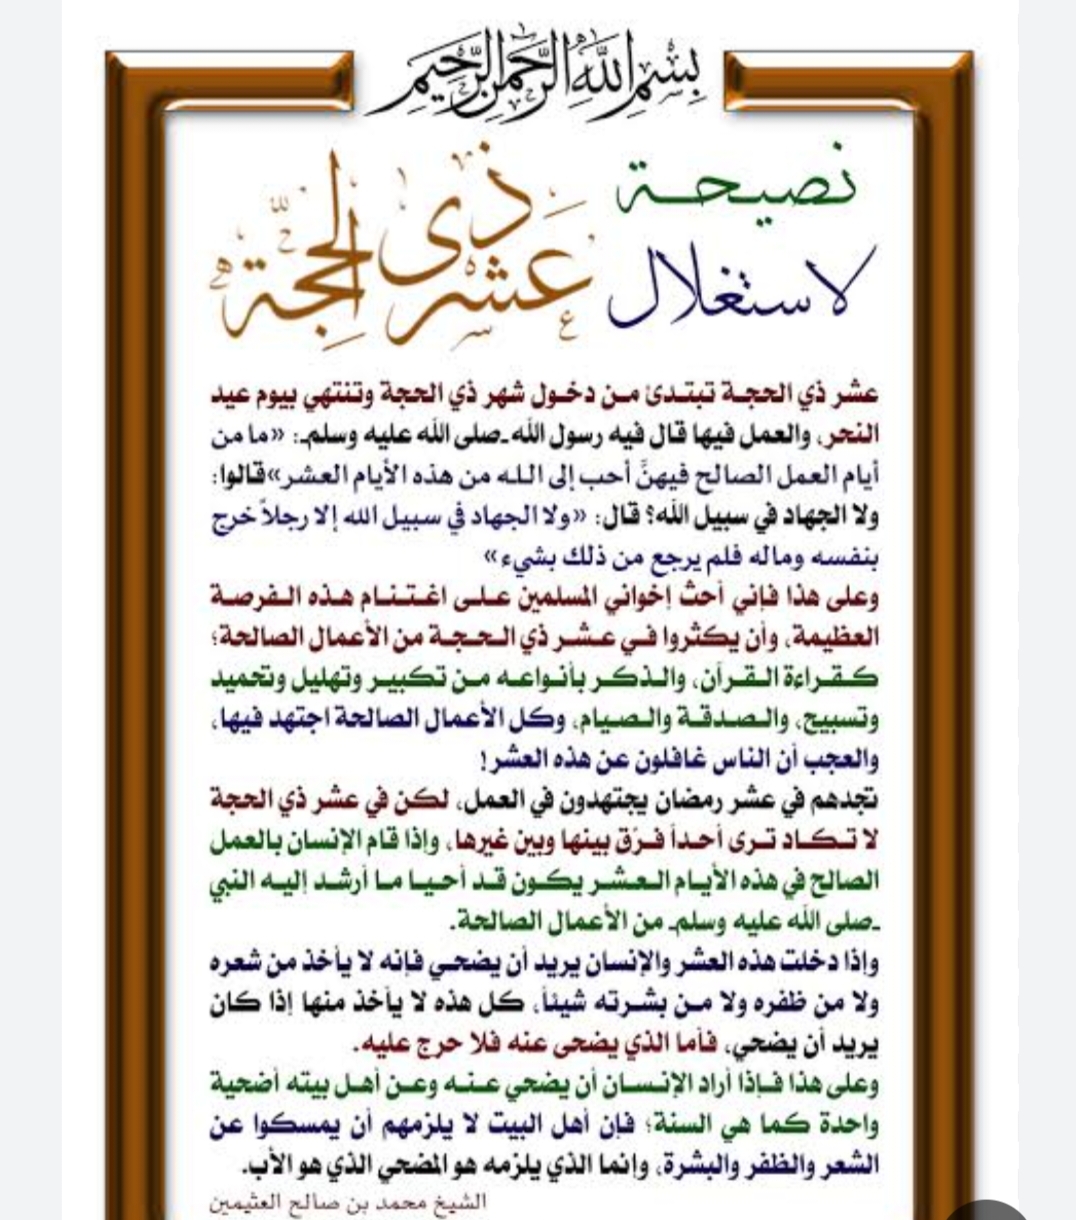 بسم الله الرحمن الرحيم
نصيحة
لاستغلال
عشر ذي الحجة
عشر ذي الحجة تبتدئ من دخول شهر ذي الحجة وتنتهي بيوم عيد
النحر، والعمل فيها قال فيه رسول الله ـصلى الله عليه وسلمـ: «ما من
أيام العمل الصالح فيهنَّ أحب إلى الله من هذه الأيام العشر»قالوا:
ولا الجهاد في سبيل الله؟ قال: «ولا الجهاد في سبيل الله إلا رجلاً خرج
بنفسه وماله فلم يرجع من ذلك بشيء»
وعلى هذا فإني أحث إخواني المسلمين على اغتنام هذه الفرصة
العظيمة، وأن يكثروا في عشر ذي الحجة من الأعمال الصالحة؛
كقراءة القرآن، والذكر بأنواعه من تكبير وتهليل وتحميد
وتسبيح، والصدقة والصيام، وكل الأعمال الصالحة اجتهد فيها،
والعجب أن الناس غافلون عن هذه العشر!
تجدهم في عشر رمضان يجتهدون في العمل، لكن في عشر ذي الحجة
لا تكاد ترى أحداً فرّق بينها وبين غيرها، وإذا قام الإنسان بالعمل
الصالح في هذه الأيام العشر يكون قد أحيا ما أرشد إليه النبي
ـصلى الله عليه وسلمـ من الأعمال الصالحة.
وإذا دخلت هذه العشر والإنسان يريد أن يضحي فإنه لا يأخذ من شعره
ولا من ظفره ولا من بشرته شيئاً، كل هذه لا يأخذ منها إذا كان
يريد أن يضحي، فأما الذي يضحى عنه فلا حرج عليه.
وعلى هذا فإذا أراد الإنسان أن يضحي عنه وعن أهل بيته أضحية
واحدة كما هي السنة؛ فإن أهل البيت لا يلزمهم أن يمسكوا عن
الشعر والظفر والبشرة، وإنما الذي يلزمه هو المضحي الذي هو الأب.
الشيخ محمد بن صالح العثيمين